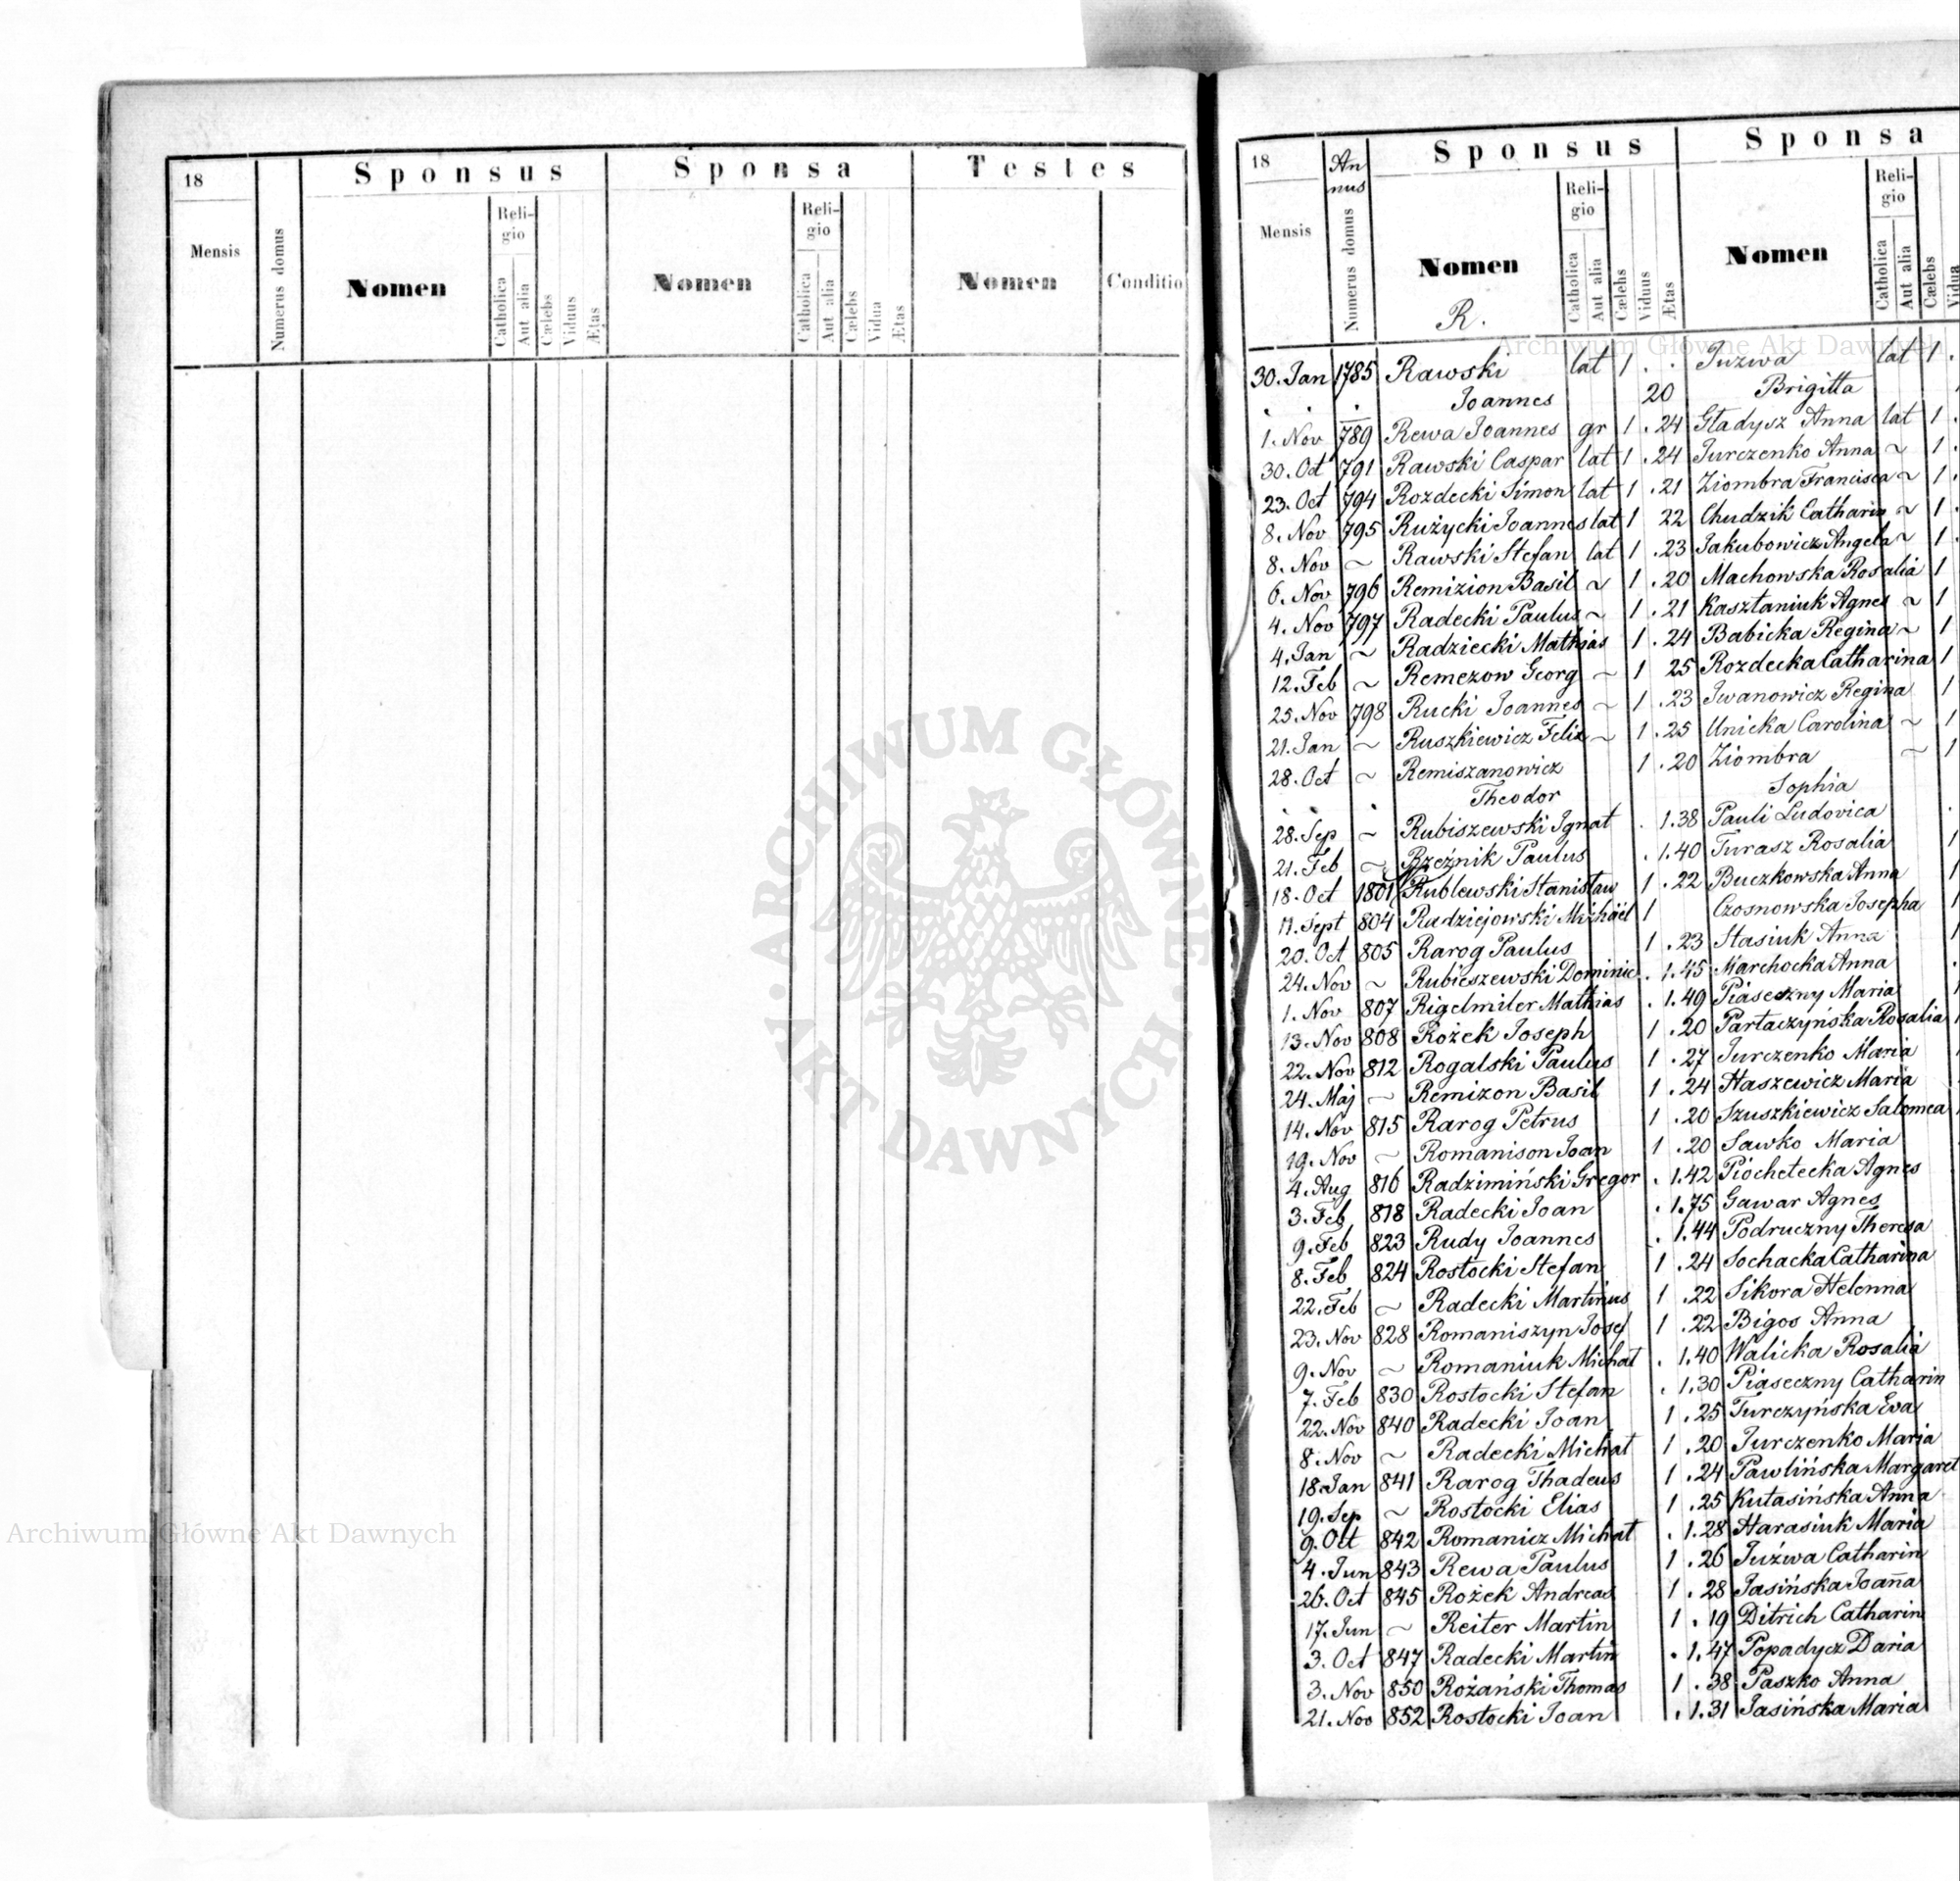 18
Mensis
Numerus domus
Sponsus
Nomen
Reli-
gio
Catholica
Aut alia
Cælebs
Viduus
Ætas
Sponsa
Nomen
Reli-
gio
Catholica
Aut alia
Cælebs
Vidua
Ætas
Testes
Nomen
Conditio
18
Mensis
An
nus
Numerus domus
Sponsus
Nomen
R.
Reli-
gio
Catholica
Aut alia
Cælebs
Viduus
Ætas
Sponsa
Nomen
Reli-
gio
Catholica
Aut alia
Cælebs
Vidua
30. Jan 1785 Rawski lat 1 . . Juzwa lat 1 .
Joannes 20 Brigitta
1. Nov 789 Rewa Joannes gr 1 . 24 Gładysz Anna lat 1 .
30. Oct 791 Rawski Caspar lat 1 . 24 Jurczenko Anna ~ 1 .
23. Oct 794 Rozdecki Simon lat 1 . 21 Ziombra Francisca ~ 1 .
8. Nov 795 Rużycki Joannes lat 1 22 Chudzik Catharin ~ 1 .
8. Nov ~ Rawski Stefan lat 1 . 23 Jakubowicz Angela ~ 1 .
6. Nov 796 Remizion Basil ~ 1 . 20 Machowska Rosalia 1
4. Nov 797 Radecki Paulus ~ 1 . 21 Kasztaniuk Agnes ~ 1
4. Jan ~ Radziecki Mathias 1 . 24 Babicka Regina ~ 1
12. Feb ~ Remezow Georg ~ 1 25 Rozdecka Catharina 1
25. Nov 798 Rucki Joannes ~ 1 . 23 Iwanowicz Regina 1
21. Jan ~ Ruszkiewicz Felix ~ 1 . 25 Unicka Carolina ~ 1
28. Oct ~ Remiszanowicz 1 . 20 Ziombra ~ 1
Theodor Sophia
28. Sep ~ Rubiszewski Ignat . 1. 38 Pauli Ludovica .
21. Feb ~ Rzeźnik Paulus . 1. 40 Turasz Rosalia 1
18. Oct 1801 Rublewski Stanisław 1 . 22 Buczkowska Anna 1
11. Sept 804 Radziejowski Michäel 1 Czosnowska Josepha 1
20. Oct 805 Rarog Paulus 1 . 23 Stasiuk Anna 1
24. Nov ~ Rubieszewski Dominic . 1. 45 Marchocka Anna .
1. Nov 807 Rigelmiler Mathias . 1. 49 Piaseczny Maria 1
13. Nov 808 Rożek Joseph 1 . 20 Partaczyńska Rosalia 1
22. Nov 812 Rogalski Paulus 1 . 27 Jurczenko Maria
24. Maj ~ Remizon Basil 1 . 24 Haszewicz Maria
14. Nov 815 Rarog Petrus 1 . 20 Szuszkiewicz Salomea
19. Nov ~ Romanison Joan 1 . 20 Sawko Maria
4. Aug 816 Radzimiński Gregor . 1. 42 Piochetecka Agnes
3. Feb 818 Radecki Joan . 1. 75 Gawar Agnes
9. Feb 823 Rudy Joannes . 1. 44 Podruczny Theresa
8. Feb 824 Rostocki Stefan 1 . 24 Sochacka Catharina
22. Feb ~ Radecki Martinus 1 . 22 Sikora Helenna
23. Nov 828 Romaniszyn Josef 1 . 22 Bigos Anna
9. Nov ~ Romaniuk Michał . 1. 40 Walicka Rosalia
7. Feb 830 Rostocki Stefan . 1. 30 Piaseczny Catharin
22. Nov 840 Radecki Joan 1 . 25 Turczyńska Eva
8. Nov ~ Radecki Michał 1 . 20 Jurczenko Maria
18. Jan 841 Rarog Thadeus 1 . 24 Pawlińska Margaret
19. Sep ~ Rostocki Elias 1 . 25 Kutasińska Anna
9. Oct 842 Romanicz Michał . 1. 28 Harasiuk Maria
4. Jun 843 Rewa Paulus 1 . 26 Juźwa Catharin
26. Oct 845 Rożek Andreas 1 . 28 Jasińska Joana
17. Jun ~ Reiter Martin 1 . 19 Ditrich Catharin
3. Oct 847 Radecki Martin . 1. 47 Popadycz Daria
3. Nov 850 Rożański Thomas 1 . 38 Paszko Anna
21. Nov 852 Rostocki Joan . 1. 31 Jasińska Maria
Archiwum Główne Akt Dawnych
ARCHIWUM GŁÓWNE · AKT DAWNYCH ·
Archiwum Główne Akt Dawnych